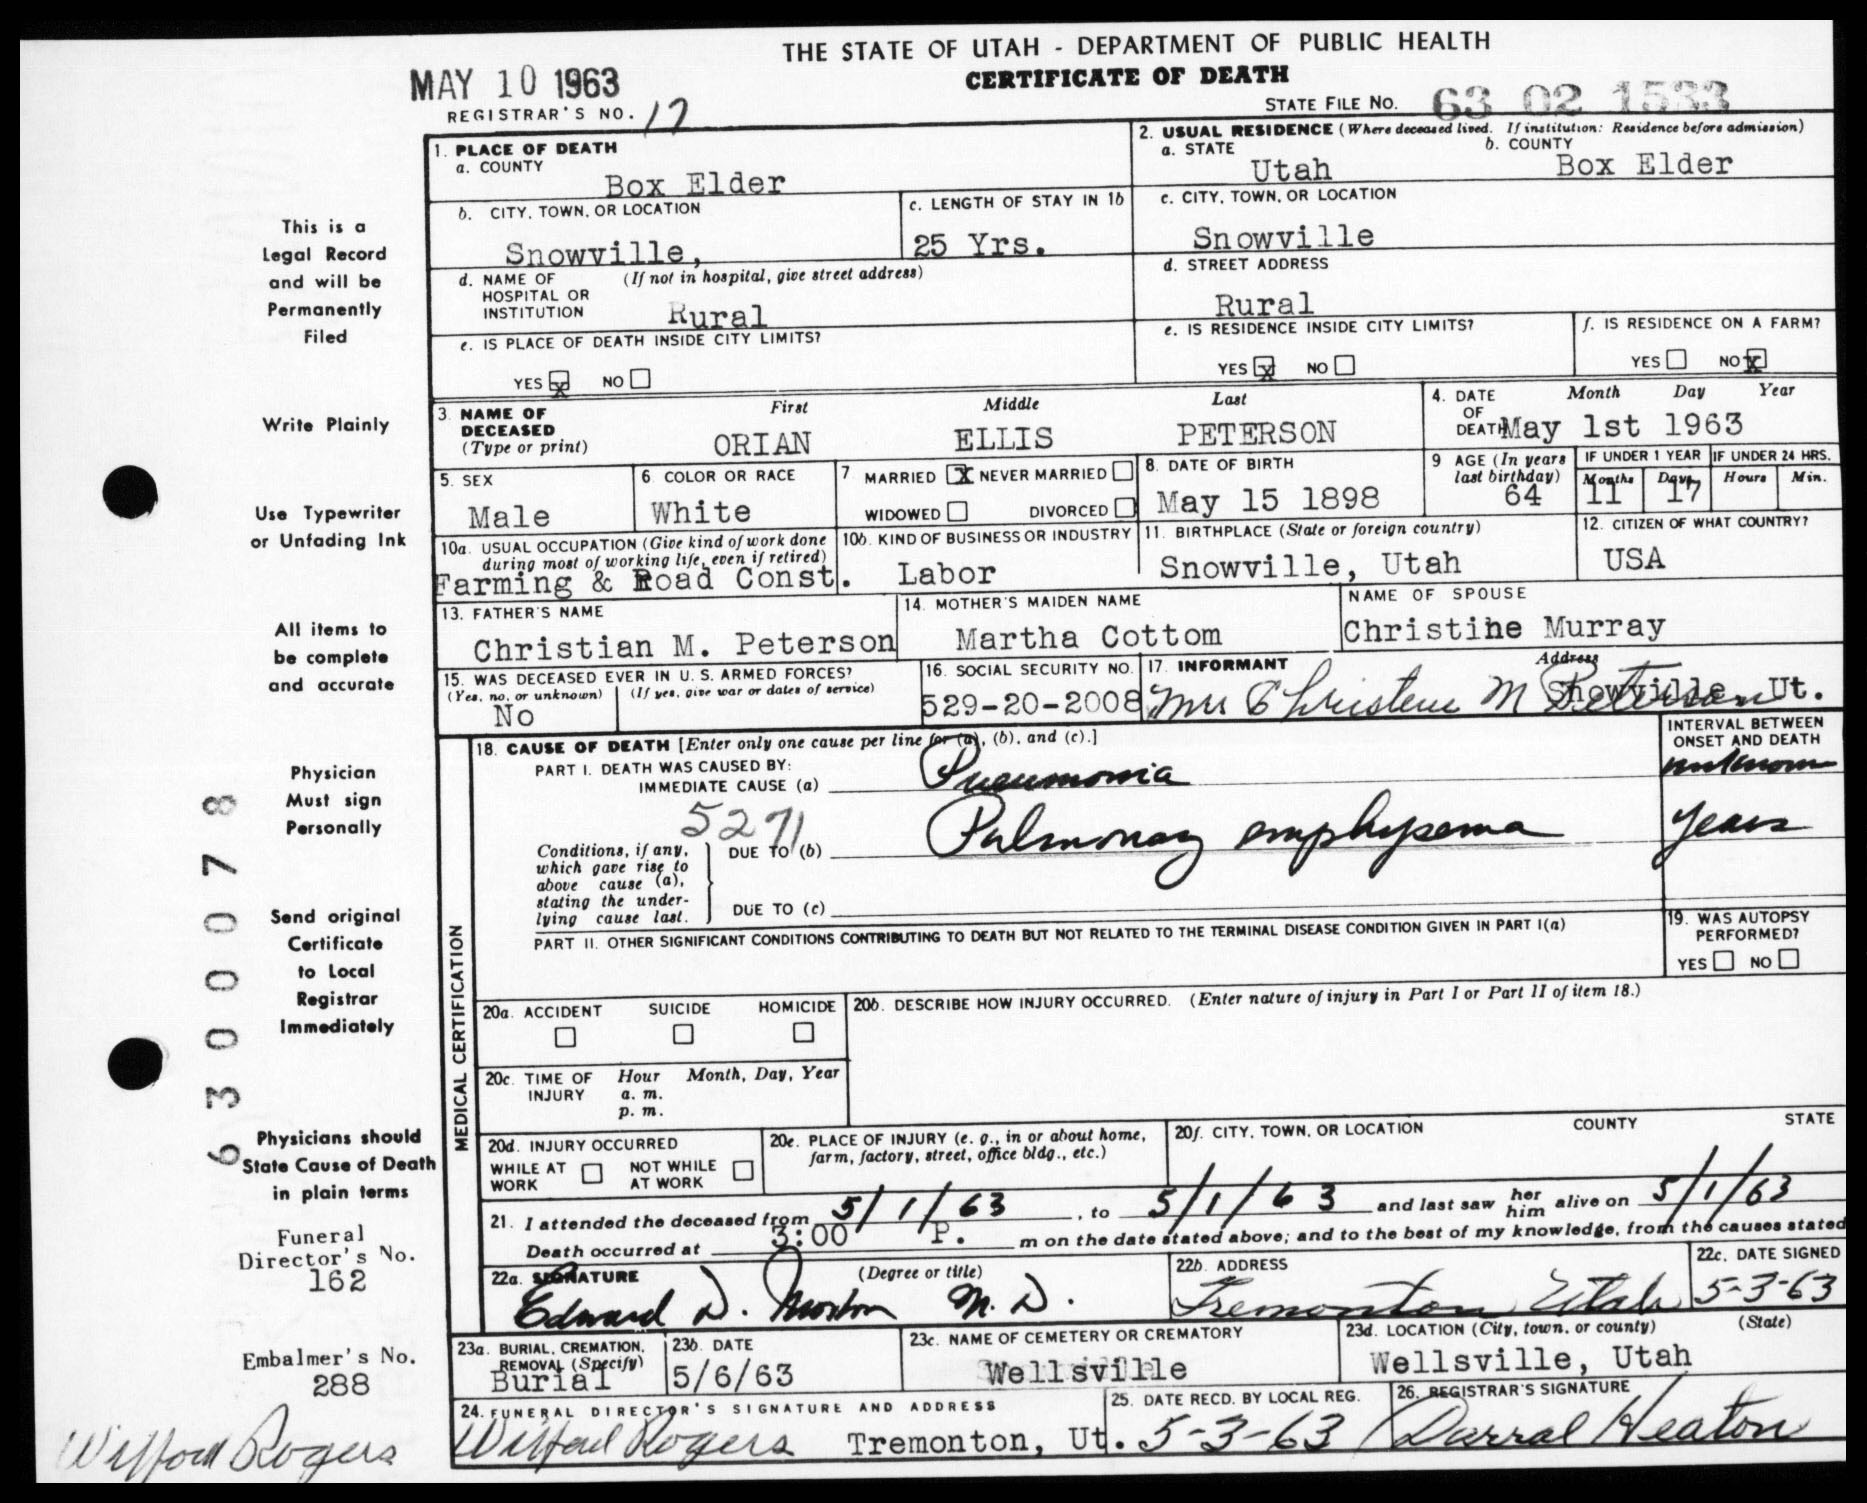 THE STATE OF UTAH - DEPARTMENT OF PUBLIC HEALTH
CERTIFICATE OF DEATH
MAY 10 1963
REGISTRAR'S NO. 17
STATE FILE NO. 63 02 1533
1. PLACE OF DEATH
a. COUNTY
Box Elder
2. USUAL RESIDENCE (Where deceased lived. If institution: Residence before admission)
a. STATE b. COUNTY
Utah Box Elder
b. CITY, TOWN, OR LOCATION
Snowville,
c. LENGTH OF STAY IN 1b
25 Yrs.
c. CITY, TOWN, OR LOCATION
Snowville
d. NAME OF (If not in hospital, give street address)
HOSPITAL OR
INSTITUTION Rural
d. STREET ADDRESS
Rural
e. IS PLACE OF DEATH INSIDE CITY LIMITS?
YES x NO
e. IS RESIDENCE INSIDE CITY LIMITS?
YES x NO
f. IS RESIDENCE ON A FARM?
YES NO x
3. NAME OF First Middle Last
DECEASED
(Type or print) ORIAN ELLIS PETERSON
4. DATE Month Day Year
OF
DEATH May 1st 1963
5. SEX
Male
6. COLOR OR RACE
White
7 MARRIED X NEVER MARRIED
WIDOWED DIVORCED
8. DATE OF BIRTH
May 15 1898
9 AGE (In years
last birthday)
64
IF UNDER 1 YEAR
Months Days
11 17
IF UNDER 24 HRS.
Hours Min.
10a. USUAL OCCUPATION (Give kind of work done
during most of working life, even if retired)
Farming & Road Const.
10b. KIND OF BUSINESS OR INDUSTRY
Labor
11. BIRTHPLACE (State or foreign country)
Snowville, Utah
12. CITIZEN OF WHAT COUNTRY?
USA
13. FATHER'S NAME
Christian M. Peterson
14. MOTHER'S MAIDEN NAME
Martha Cottom
NAME OF SPOUSE
Christine Murray
15. WAS DECEASED EVER IN U. S. ARMED FORCES?
(Yes, no, or unknown) (If yes, give war or dates of service)
No
16. SOCIAL SECURITY NO.
529-20-2008
17. INFORMANT Address
Mrs Christene M Peterson Snowville, Ut.
MEDICAL CERTIFICATION
18. CAUSE OF DEATH [Enter only one cause per line for (a), (b), and (c).]
PART I. DEATH WAS CAUSED BY:
IMMEDIATE CAUSE (a) Pneumonia
INTERVAL BETWEEN
ONSET AND DEATH
unknown
5271
Conditions, if any,
which gave rise to
above cause (a),
stating the under-
lying cause last.
DUE TO (b) Pulmonary emphysema years
DUE TO (c)
PART II. OTHER SIGNIFICANT CONDITIONS CONTRIBUTING TO DEATH BUT NOT RELATED TO THE TERMINAL DISEASE CONDITION GIVEN IN PART I(a)
19. WAS AUTOPSY
PERFORMED?
YES NO
20a. ACCIDENT SUICIDE HOMICIDE
20b. DESCRIBE HOW INJURY OCCURRED. (Enter nature of injury in Part I or Part II of item 18.)
20c. TIME OF Hour Month, Day, Year
INJURY a. m.
p. m.
20d. INJURY OCCURRED
WHILE AT NOT WHILE
WORK AT WORK
20e. PLACE OF INJURY (e. g., in or about home,
farm, factory, street, office bldg., etc.)
20f. CITY, TOWN, OR LOCATION COUNTY STATE
21. I attended the deceased from 5/1/63, to 5/1/63 and last saw her him alive on 5/1/63
Death occurred at 3:00 P. m on the date stated above; and to the best of my knowledge, from the causes stated
22a. SIGNATURE (Degree or title)
Edward D. Morton M. D.
22b. ADDRESS
Tremonton Utah
22c. DATE SIGNED
5-3-63
23a. BURIAL, CREMATION,
REMOVAL (Specify)
Burial
23b. DATE
5/6/63
23c. NAME OF CEMETERY OR CREMATORY
Wellsville
23d. LOCATION (City, town, or county) (State)
Wellsville, Utah
24. FUNERAL DIRECTOR'S SIGNATURE AND ADDRESS
Wilford Rogers Tremonton, Ut.
25. DATE RECD. BY LOCAL REG.
5-3-63
26. REGISTRAR'S SIGNATURE
Darral Heaton
This is a
Legal Record
and will be
Permanently
Filed
Write Plainly
Use Typewriter
or Unfading Ink
All items to
be complete
and accurate
Physician
Must sign
Personally
Send original
Certificate
to Local
Registrar
Immediately
Physicians should
State Cause of Death
in plain terms
Funeral
Director's No.
162
Embalmer's No.
288
Wilford Rogers
6300078